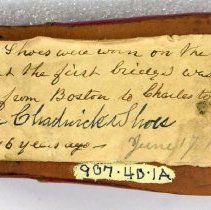 Shoes were worn on the
the first bridge was
from Boston to Charlest
Chadwick Shoes
6 years ago— June 17
907.4D.1A